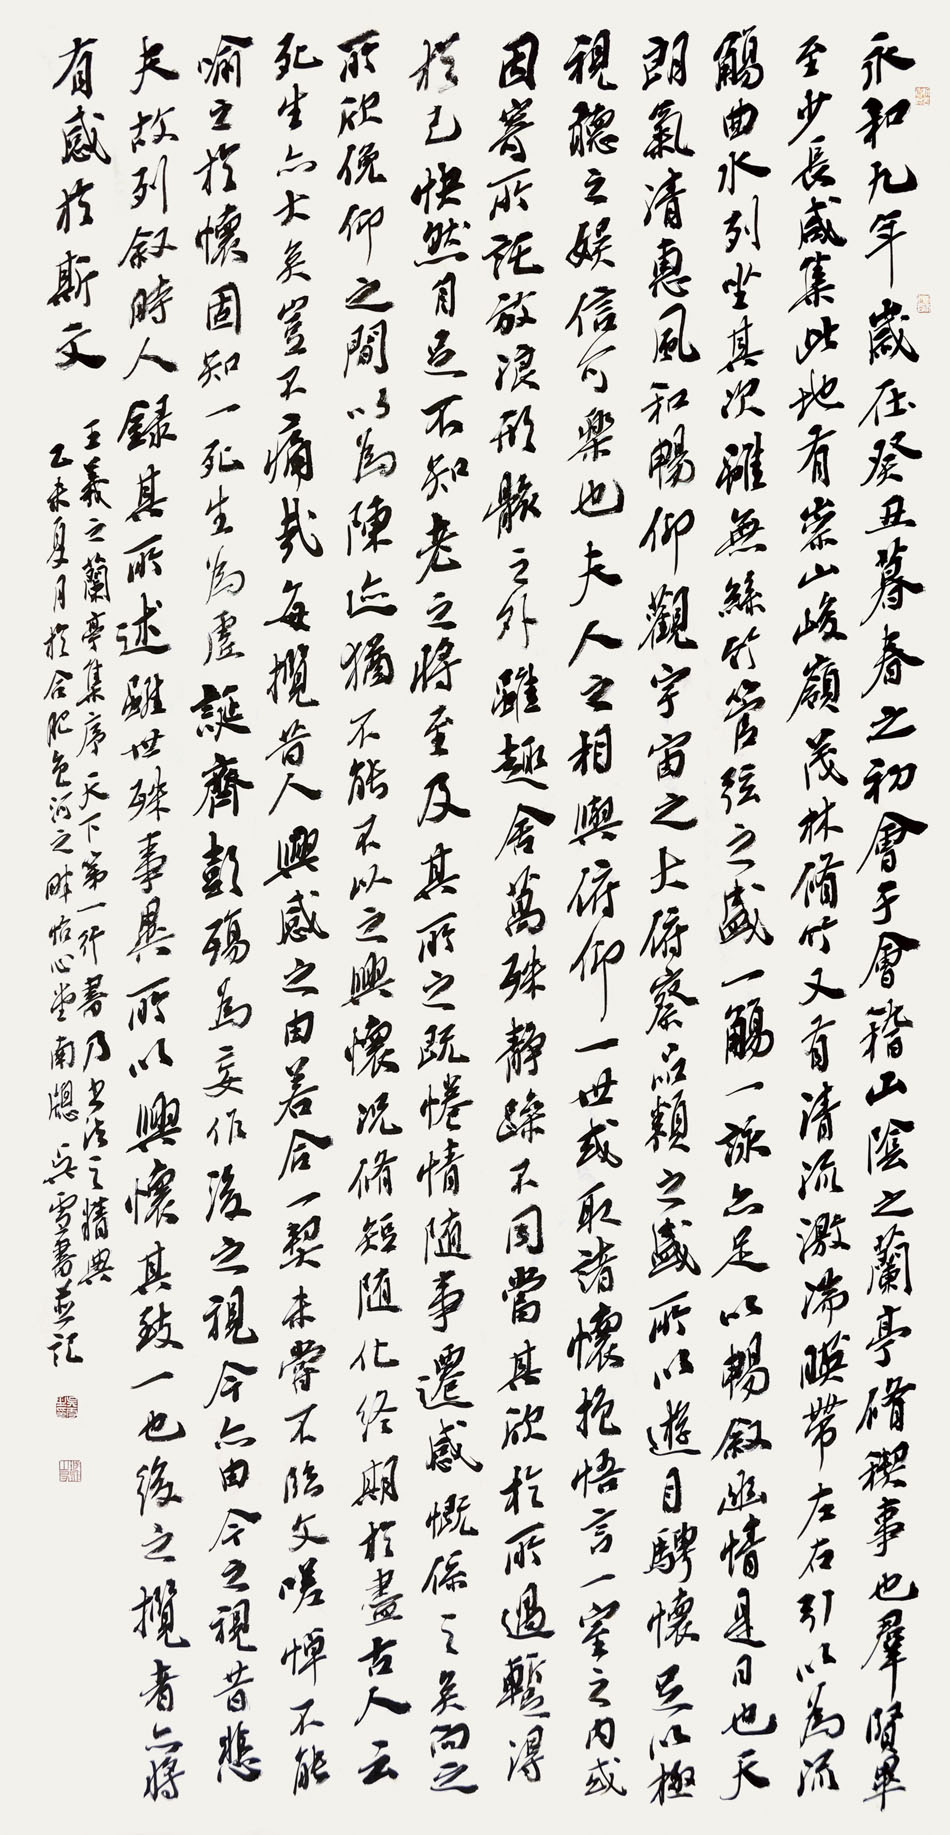 永和九年歲在癸丑暮春之初會于會稽山陰之蘭亭脩禊事也羣賢畢
至少長咸集此地有崇山峻嶺茂林脩竹又有清流激湍暎帶左右引以為流
觴曲水列坐其次雖無絲竹管弦之盛一觴一詠亦足以暢叙幽情是日也天
朗氣清惠風和暢仰觀宇宙之大俯察品類之盛所以遊目騁懷足以極
視聽之娛信可樂也夫人之相與俯仰一世或取諸懷抱悟言一室之內或
因寄所託放浪形骸之外雖趣舍萬殊靜躁不同當其欣於所遇暫得
於己快然自足不知老之將至及其所之既惓情隨事遷感慨係之矣向之
所欣俛仰之間以為陳迹猶不能不以之興懷況脩短隨化終期於盡古人云
死生亦大矣豈不痛哉每攬昔人興感之由若合一契未嘗不臨文嗟悼不能
喻之於懷固知一死生為虛誕齊彭殤為妄作後之視今亦由今之視昔悲
夫故列叙時人錄其所述雖世殊事異所以興懷其致一也後之攬者亦將
有感於斯文
王羲之蘭亭集序天下第一行書乃書法之精典
乙未夏月於合肥包河之畔怡心堂南窗吳雪書並記